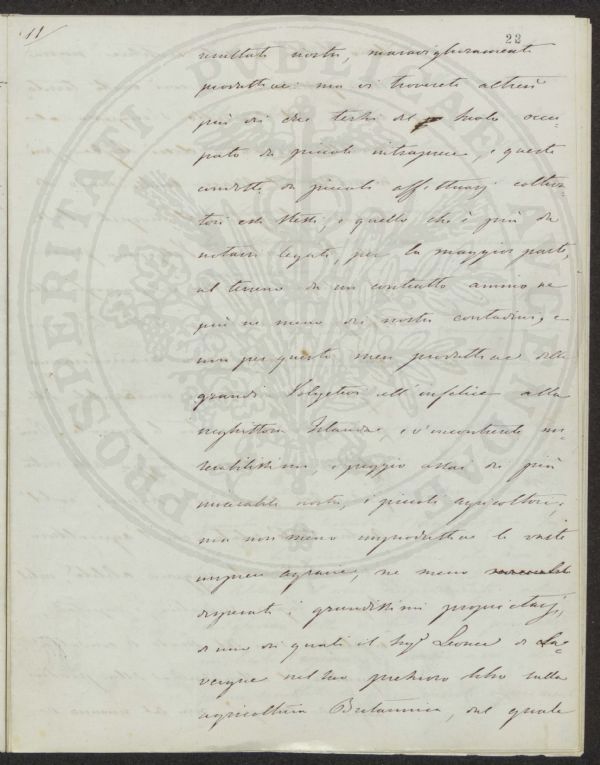 11
23
risultati nostri, maravigliosamente
produttive: ma vi troverete altresì
più di due terzi del suolo occu=
pato da piccole intraprese, e queste
condotte da piccoli affittuarj coltiva=
tori essi stessi, e quello che è più da
notarsi legati, per la maggior parte,
al terreno da un contratto annuo ne
più ne meno dei nostri contadini, e
non per questo meno produttive delle
grandi. Volgetevi all'infelice alla
neghittosa Irlanda e v'incontrerete mi=
serabilissimi e peggio assai dei più
miserabili nostri, i piccoli agricoltori;
ma non meno improduttive le vaste
imprese agrarie, ne meno
disperati i grandissimi proprietarj,
di uno dei quali il Sigr Leonce di La=
vergne nel suo prezioso libro sulla
agricoltura Britannica, dal quale
PROSPERITATI PUBLICAE AUGENDAE